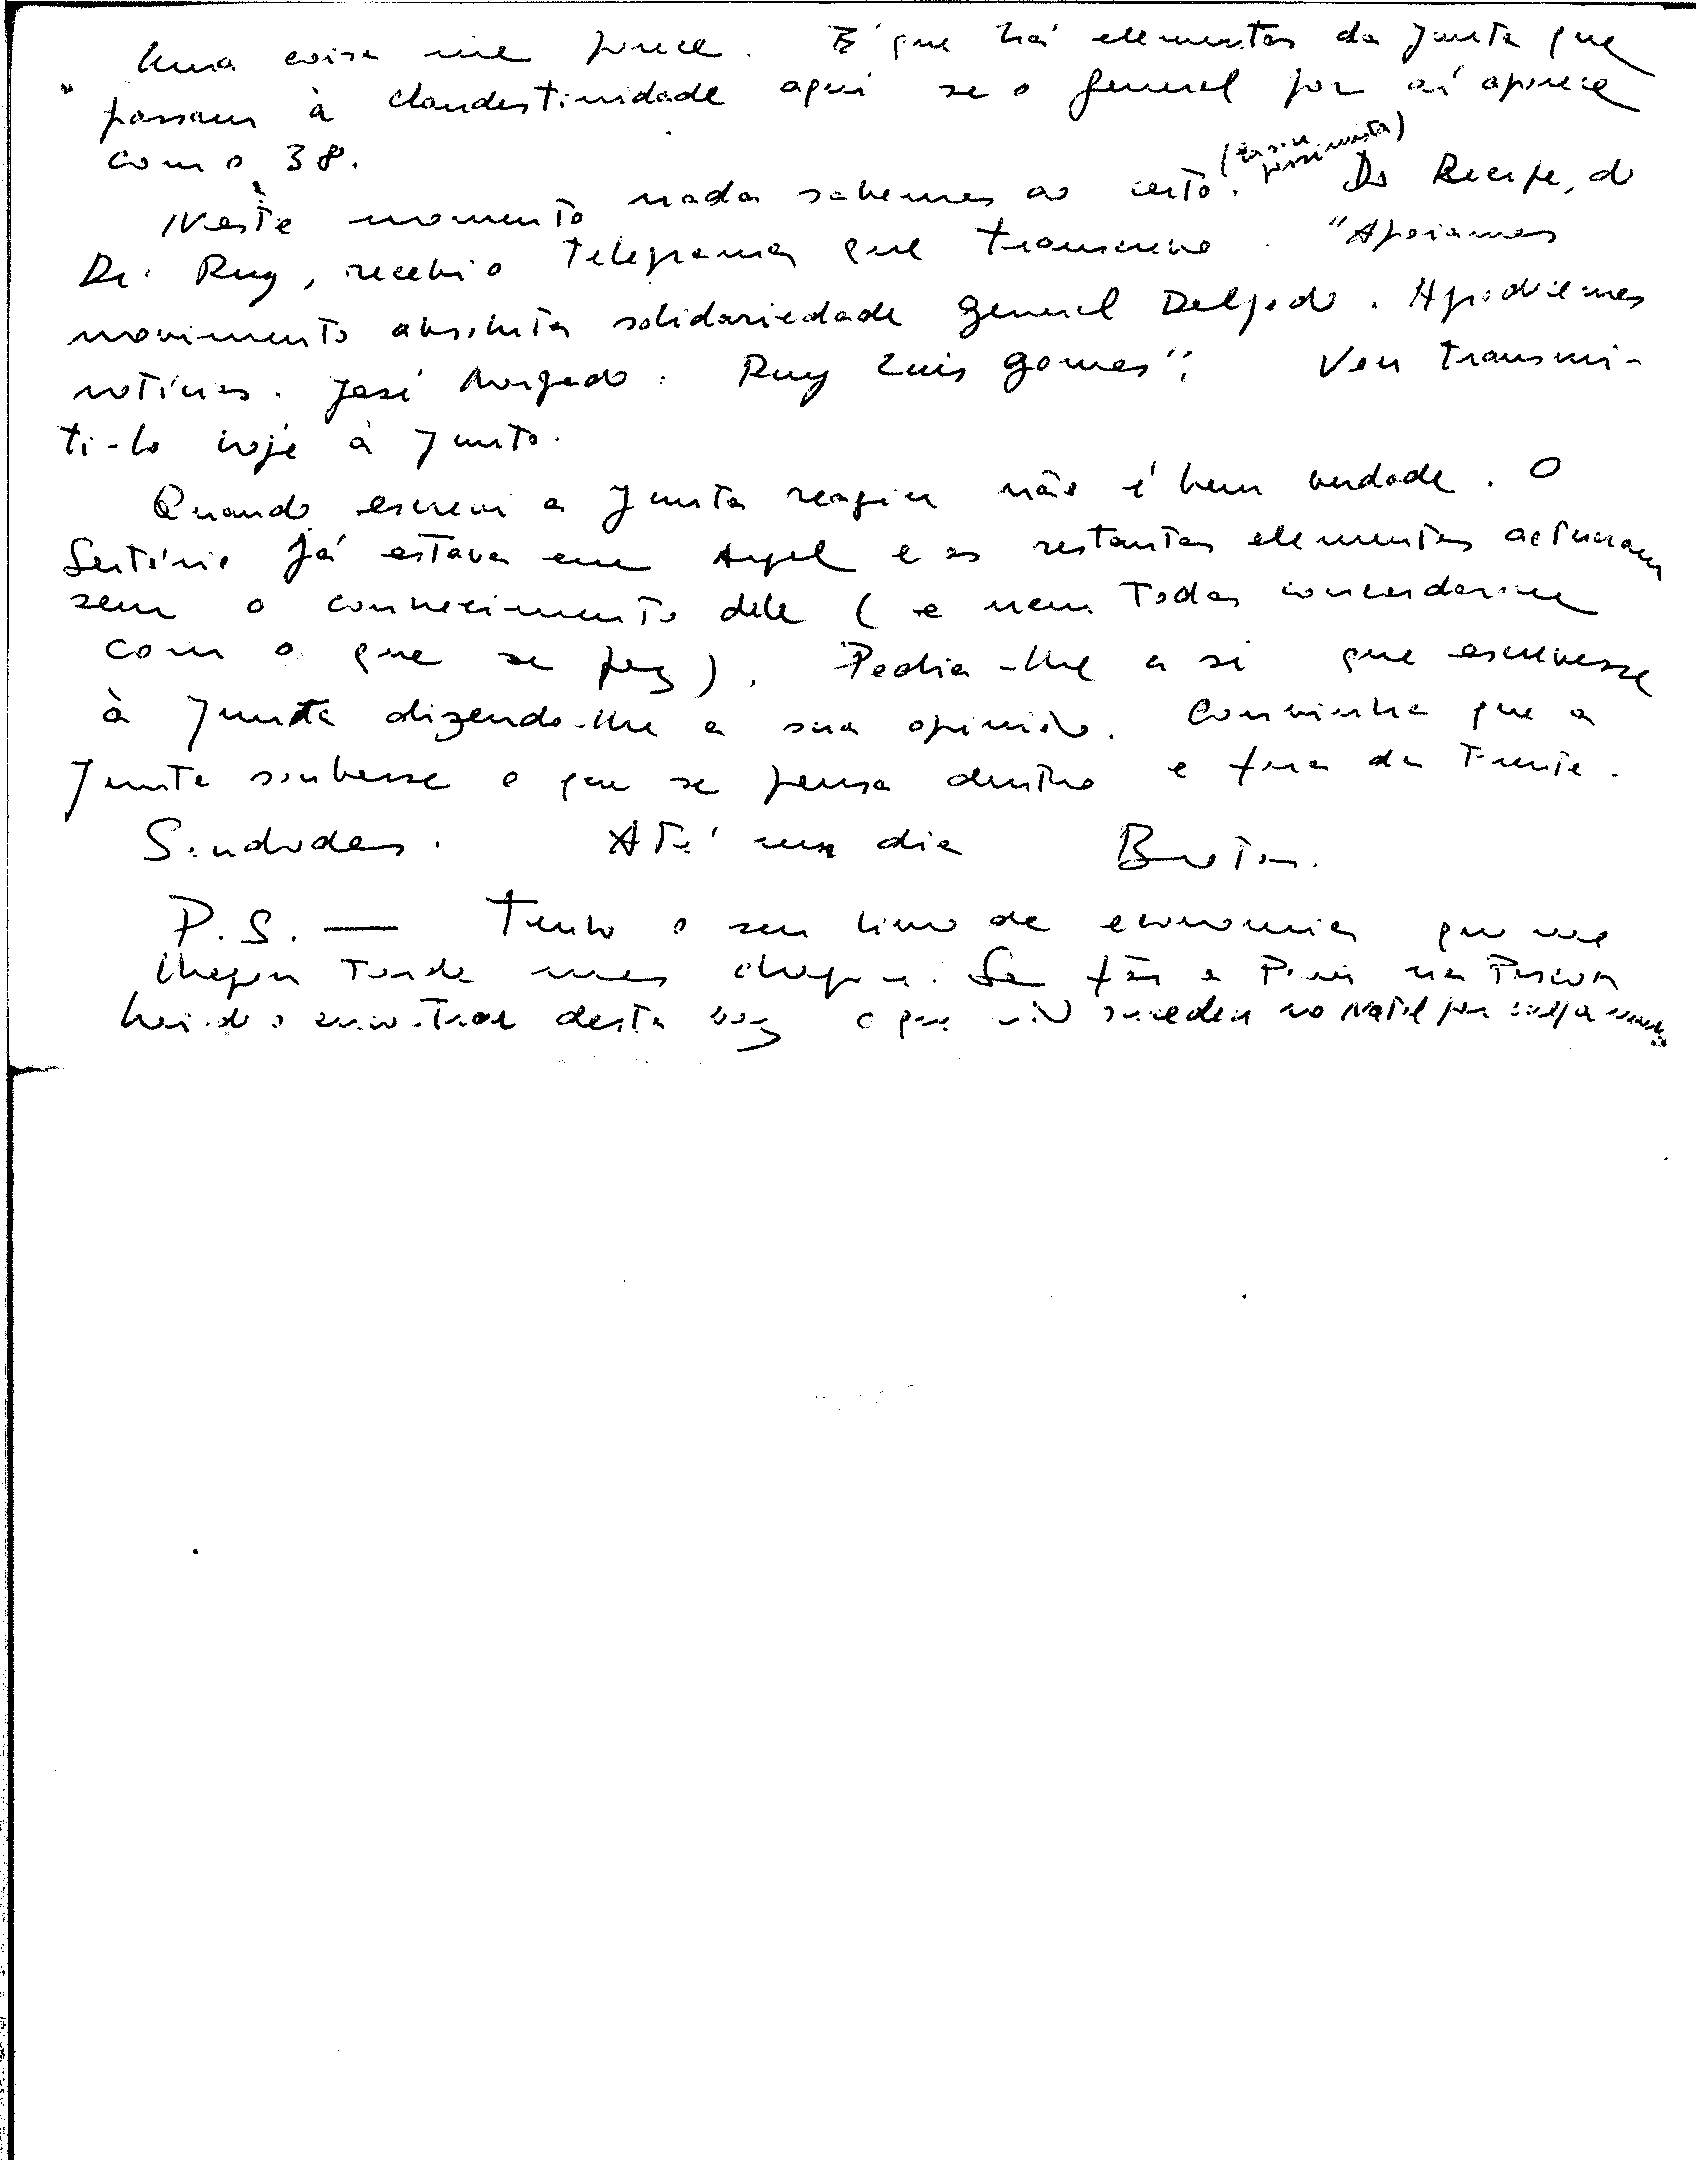 Uma coisa me parece. É que há elementos da Junta que
passam à clandestinidade aqui se o general por aí aparece
com o 38.
Neste momento nada sabemos ao certo. Do Recife, do
Dr. Ruy, recebi o telegrama que transcrevo. "Apoiamos
movimento absoluta solidariedade General Delgado. Agradecemos
notícias. José Morgado. Ruy Luis Gomes". Vou transmi-
ti-lo hoje à Junta.
Quando escrevi a Junta reagiu não é bem verdade. O
Sertório já estava em Argel e os restantes elementos actuaram
sem o conhecimento dele (e nem todos concordaram
com o que se fez). Pedia-lhe a si que escrevesse
à Junta dizendo-lhe a sua opinião. Convinha que a
Junta soubesse o que se pensa dentro e fora da Frente.
Saudades. Até um dia
P.S. — Tenho o seu livro de economia que me
chegou tarde mas chegou. Se fôr a Paris na Pascoa
hei-de o encontrar desta vez o que não sucedeu no Natal por culpa